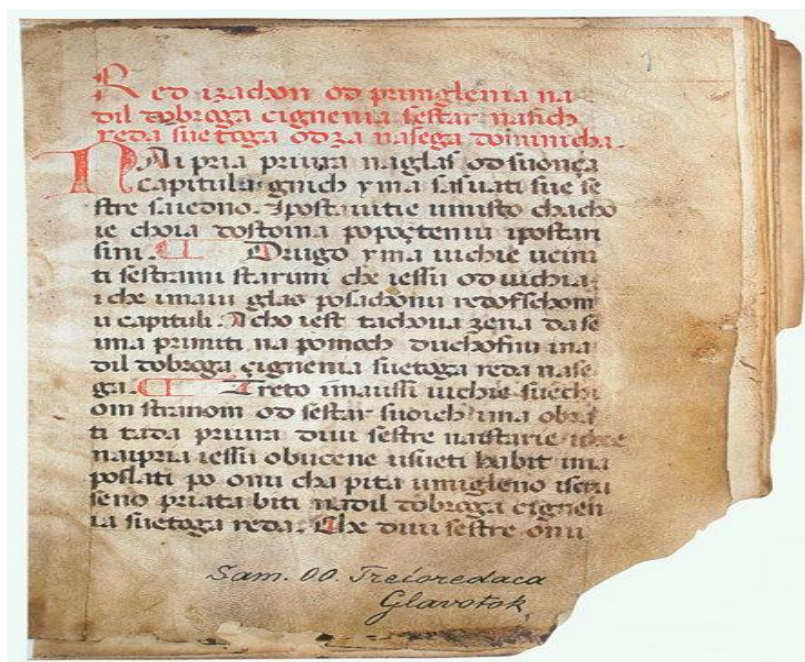 Red izachon od primglenia na
dil dobroga cignenia sestar nasich
reda suetoga odza nasega dominicha.
Nai pria priura naglas od suonça
capitula gnich yma sasuati sue se
stre saiedno. Ipostauitie umisto chacho
ie choia dostoina popoçteniu ipostari
sini. Drugo yma uichie ucini
ti sestrami starimi che iessu od uichia
i che imaiu glas posachonu redofschom
u capituli. Acho iest tachoua zena da se
ima primiti na pomoch duchofni ina
dil dobroga çignenia suetoga reda nase
ga. Treto imaussi uichie suechi
om stranom od sestar suoich ima obra
ti tada priura duiu sestre naistarie
naipria iessu obucene usueti habit ima
poslati po onu cha pita umigleno iseru
seno priata biti nadil dobroga cignen
ia suetoga reda. Che duiu sestre onu
Sam. OO. Trećoredaca
Glavotok